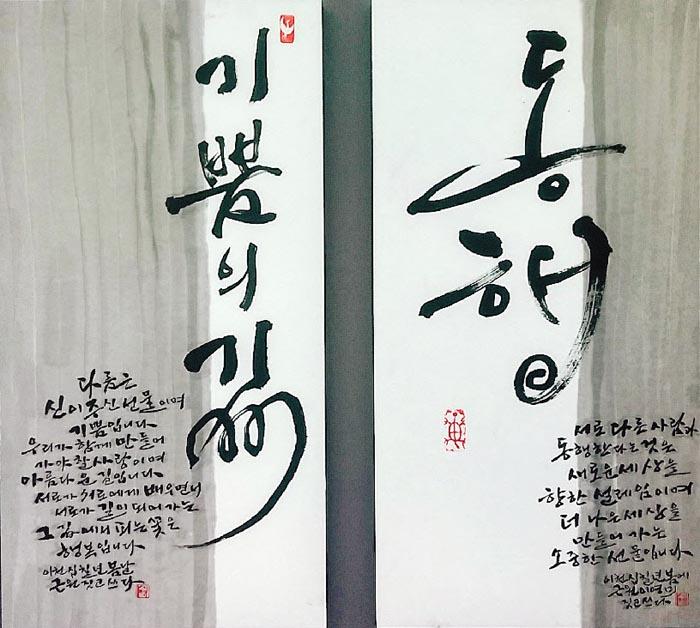 기
쁨
의
길
다름은
신이 주신 선물이며
기쁨입니다
우리가 함께 만들어
가야 할 사랑이며
아름다운 길입니다
서로가 서로에게 배우면서
서로가 길이 되어가는
그 길에서 피는 꽃은
행복입니다
이천십칠년 봄날
근원 짓고 쓰다
동
행
서로 다른 사람과
동행한다는 것은
새로운 세상을
향한 설레임이며
더 나은 세상을
만들어 가는
소중한 선물입니다
이천십칠년 봄에
근원 이연미
짓고 쓰다